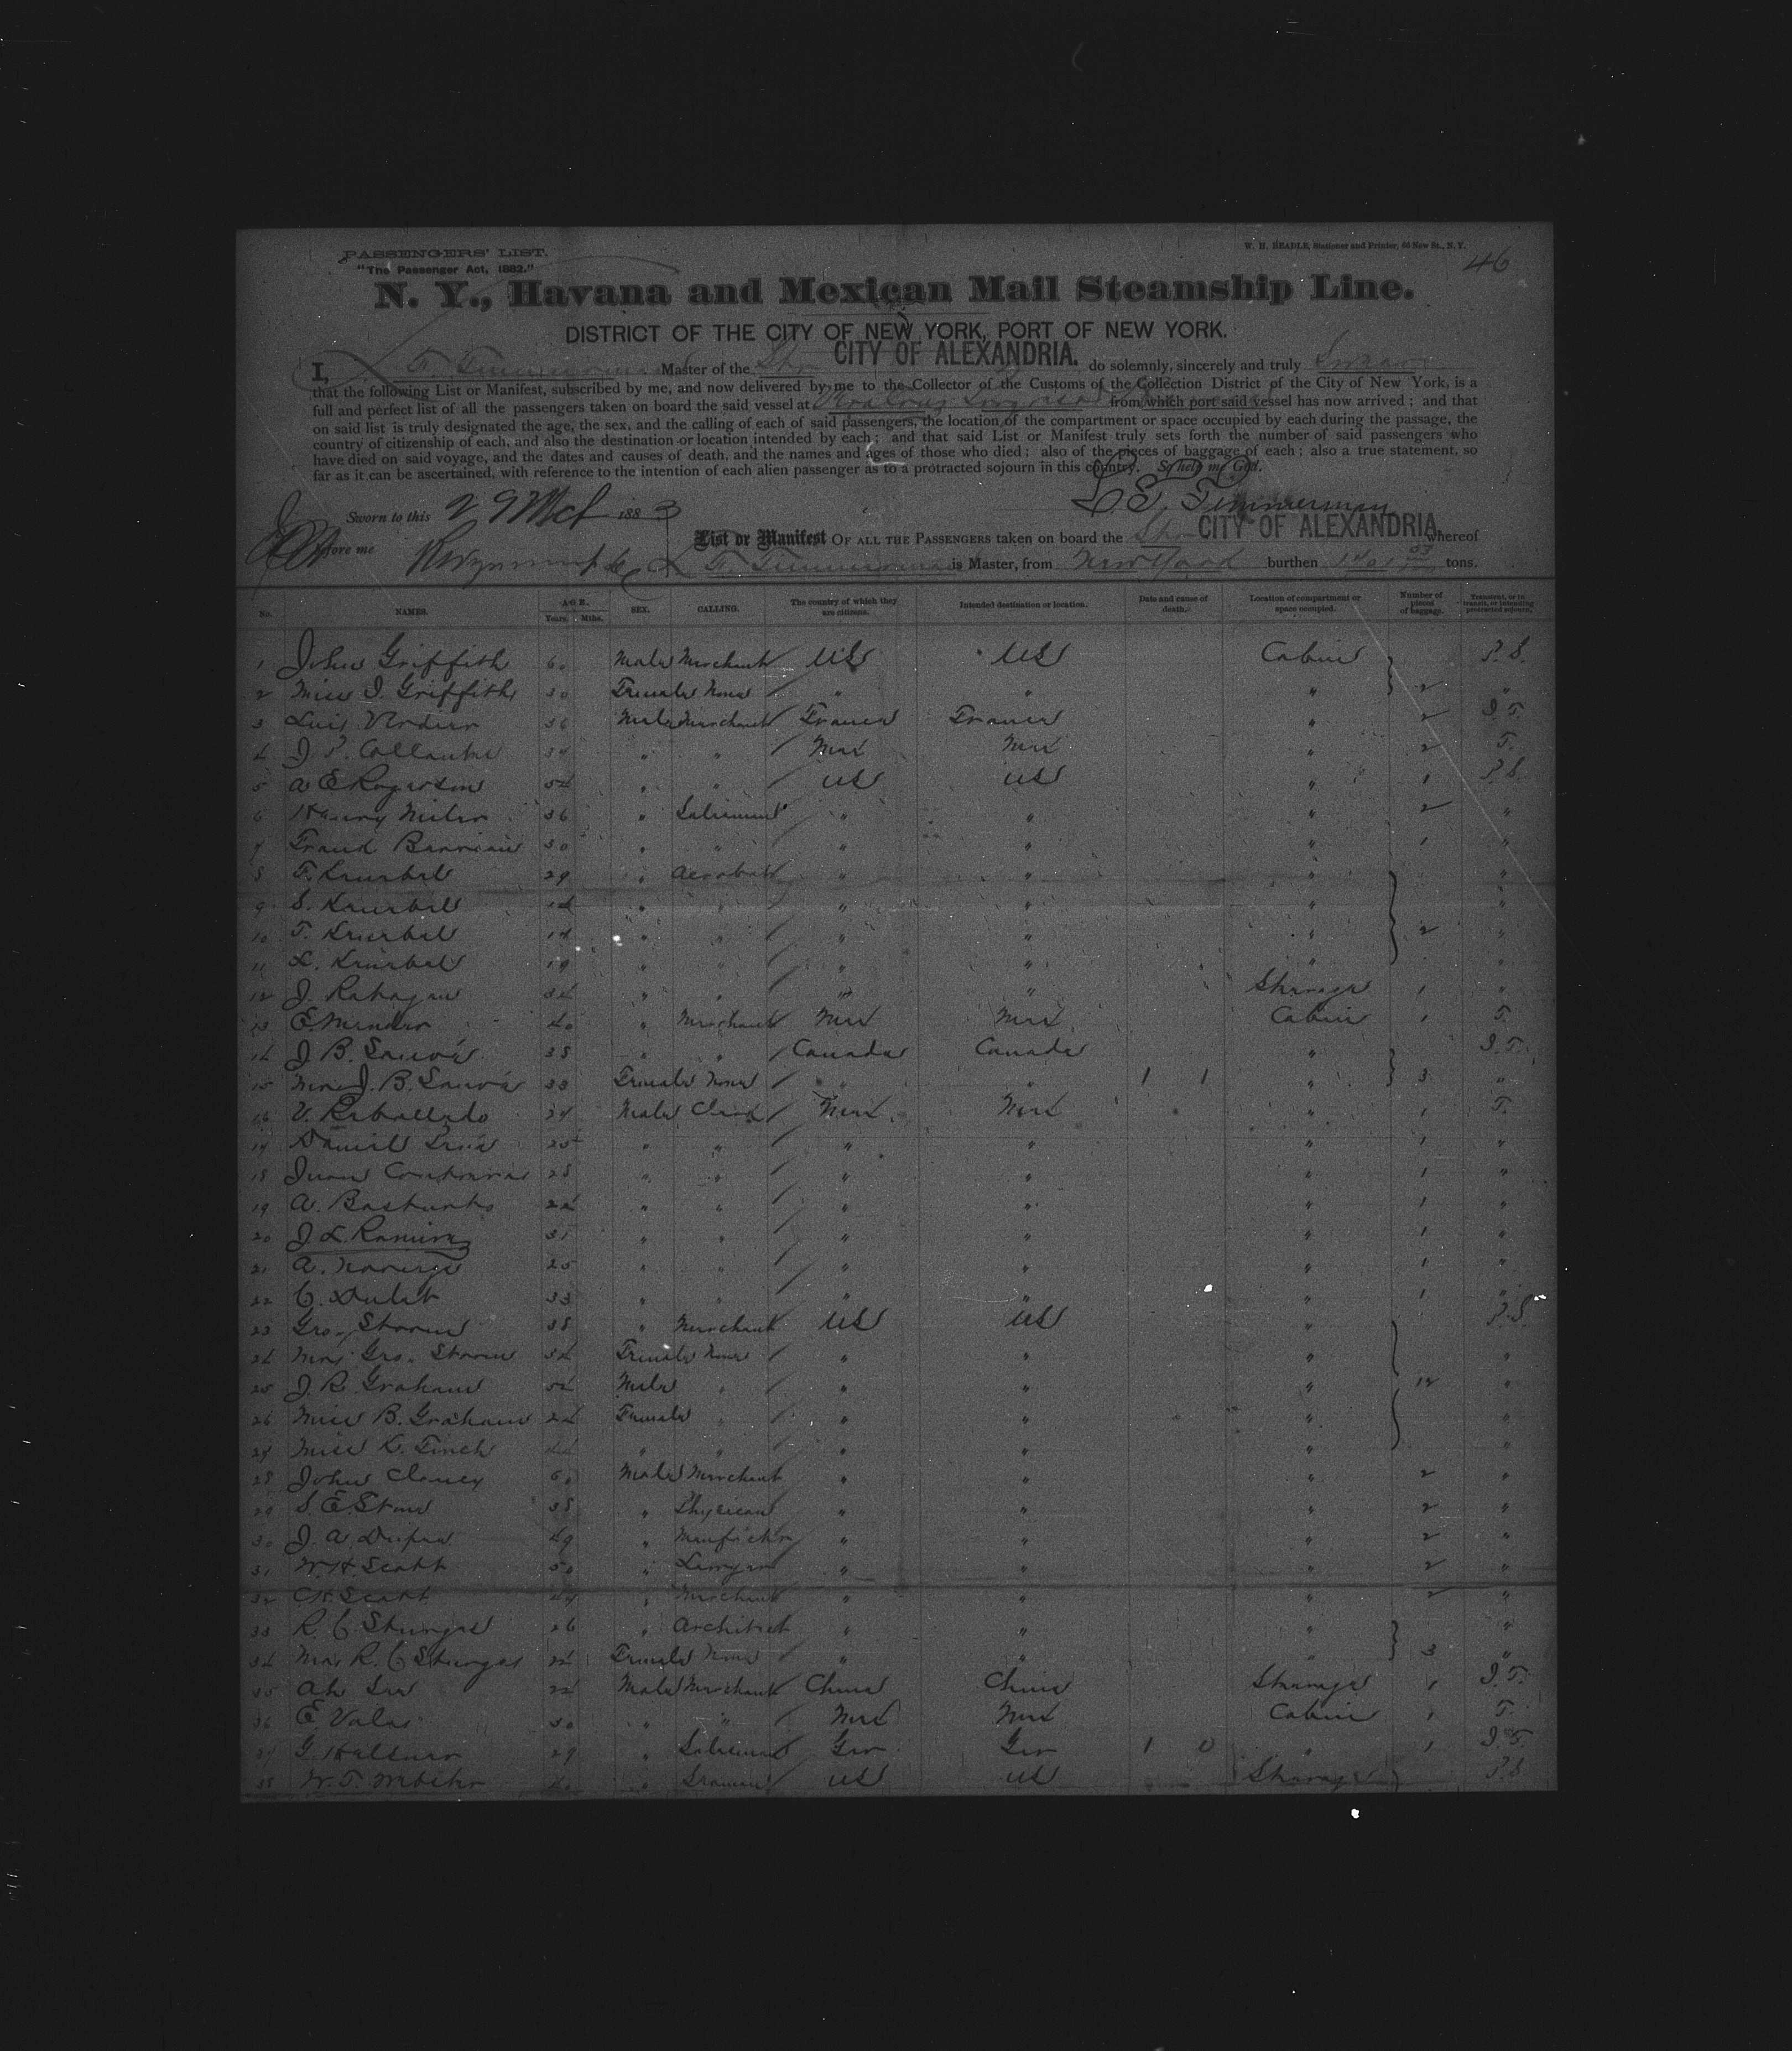 PASSENGERS' LIST.
W. H. BEADLE, Stationer and Printer, 66 New St., N. Y.
"The Passenger Act, 1882."
46
N. Y., Havana and Mexican Mail Steamship Line.
DISTRICT OF THE CITY OF NEW YORK, PORT OF NEW YORK.
I, F. Timmerman Master of the CITY OF ALEXANDRIA. do solemnly, sincerely and truly Swear
that the following List or Manifest, subscribed by me, and now delivered by me to the Collector of the Customs of the Collection District of the City of New York, is a
full and perfect list of all the passengers taken on board the said vessel at from which port said vessel has now arrived; and that
on said list is truly designated the age, the sex, and the calling of each of said passengers, the location of the compartment or space occupied by each during the passage, the
country of citizenship of each, and also the destination or location intended by each; and that said List or Manifest truly sets forth the number of said passengers who
have died on said voyage, and the dates and causes of death, and the names and ages of those who died; also of the pieces of baggage of each; also a true statement, so
far as it can be ascertained, with reference to the intention of each alien passenger as to a protracted sojourn in this country. So help me God.
Sworn to this 29 Mch 1883 Timmerman
before me
List or Manifest OF ALL THE PASSENGERS taken on board the CITY OF ALEXANDRIA. whereof
F. Timmerman is Master, from New York burthen tons.
No. NAMES. AGE. Years. Mths. SEX. CALLING. The country of which they are citizens. Intended destination or location. Date and cause of death. Location of compartment or space occupied. Number of pieces of baggage. Transient, or in transit, or intending protracted sojourn.
1 John Griffith 60 Male Merchant US US Cabin P. S.
2 Miss J. Griffith 30 Female None " " " 2 "
3 Luis 36 Male Merchant France France " 2 I T.
4 J. P. 34 " " Mex Mex " 2 T.
5 A E Rogerson 54 " " US US " 1 P. S.
6 Henry Miler 36 " Salesman " " " 2 "
7 30 " " " " " 1 "
8 F. 29 " Acrobat " " " "
9 S. " " " " " "
10 T. 14 " " " " " 2 "
11 L. 19 " " " " " "
12 J. " " " " Steerage 1 "
13 E 40 " Merchant Mex Mex Cabin 1 T.
14 J. B. 38 " " Canada Canada " I. T.
15 Mrs J. B. 33 Female None " " 1 1 " 3 "
16 V. Raballedo 24 Male Clerk Mex Mex " 1 T.
17 Daniel 25 " " " " " 1 "
18 Juan Contreras 28 " " " " " 1 "
19 A. 24 " " " " " 1 "
20 J. L. Ramirez 31 " " " " " 1 "
21 A. 25 " " " " " 1 "
22 C. 33 " " " " " 1 "
23 Geo. 38 " Merchant US US " P. S.
24 Mrs Geo. 34 Female None " " " "
25 J. R. Graham 54 Male " " " " 12 "
26 Miss B. Graham 24 Female " " " " "
27 Miss K. Finch " " " " " "
28 John Clancy 60 Male Merchant " " " 2 "
29 S. E. Stone 38 " Physician " " " 2 "
30 J. A. 49 " " " " 2 "
31 W. H. Scott 50 " Lawyer " " " 2 "
32 C H. Scott " Merchant " " " 2 "
33 R. C. Sturgis 26 " Architect " " " "
34 Mrs R. C Sturgis 24 Female None " " " 3 "
35 Ah 22 Male Merchant China China Steerage 1 I. T.
36 E. Valas 30 " " Mex Mex Cabin 1 T.
37 G. 29 " Salesman Ger Ger 1 0 " 1 I. T.
38 W. T. Seaman US US Steerage P. S.